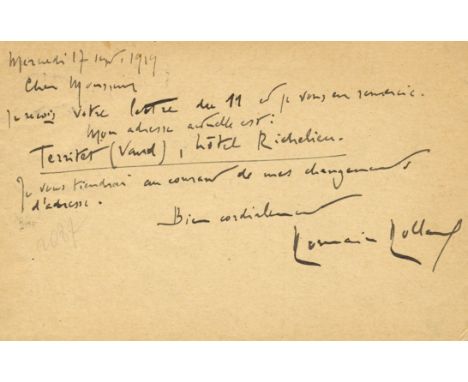 Mercredi 17 sept. 1919
Cher Monsieur
Je reçois votre lettre du 11 et je vous en remercie.
Mon adresse actuelle est :
Territet (Vaud), hôtel Richelieu.
Je vous tiendrai au courant de mes changements
d'adresse.
Bien cordialement
Romain Rolland
2087